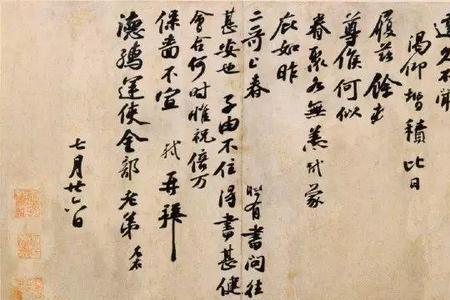 久不聞
渴仰增積比日
履茲餘
尊候何似
眷聚各無恙軾蒙
庇如昨
二哥上春 有書問往
甚安也 子由不住得書甚健
會合何時惟祝倍万
保嗇不宣 軾再拜
德孺運使金部老弟
七月廿六日